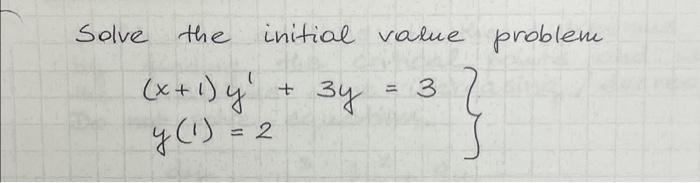 Solve the initial value problem
(x+1)y' + 3y = 3 }
y(1) = 2